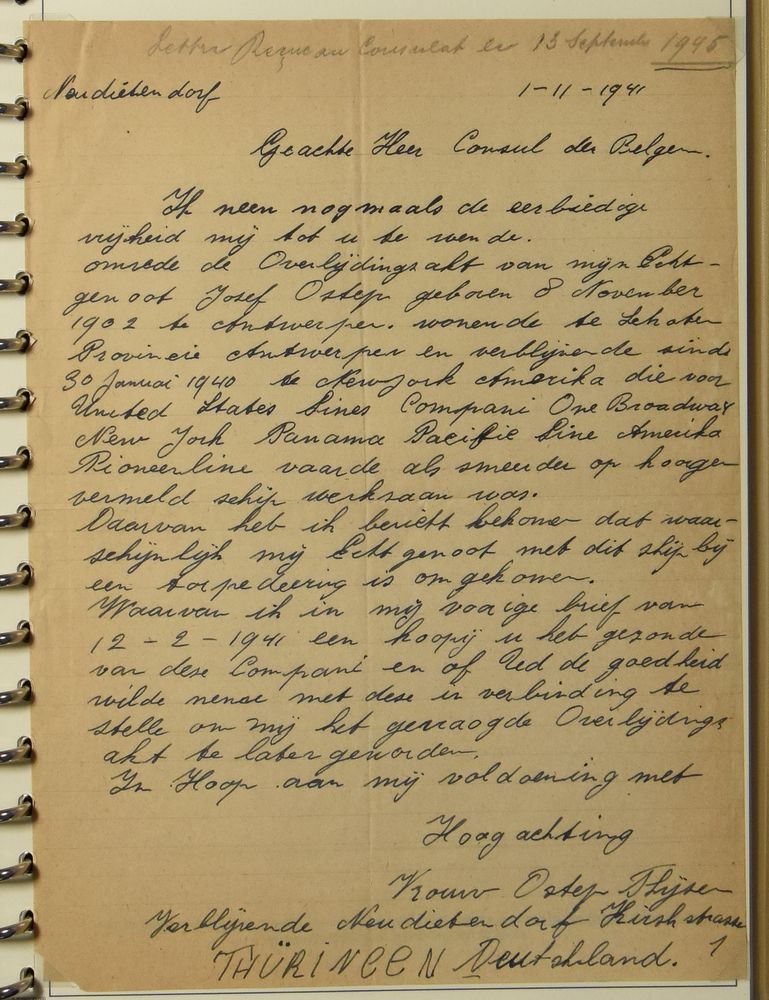 Lettre Reçue au Consulat le 13 Septembre 1945
Neudietendorf 1-11-1941
Geachte Heer Consul der Belgen.
Ik neen nogmaals de eerbiedige
vrijheid mij tot u te wende.
omrede de Overlijdingsakt van mijn Echt-
genoot Josef Ostep geboren 8 November
1902 te Antwerpen. wonende te Schoten
Provincie Antwerpen en verblijvende sinds
30 Januai 1940 te New jork Amerika die voor
United States Lines Compani One Broadway
New Jork Panama Pacific Line Amerika
Pioneerline vaarde als smeerder op hoogen
vermeld schip werkzaan was.
Daarvan heb ik bericht bekomen dat waar-
schijnlijk mij Echtgenoot met dit ship bij
een torpedeering is omgekomen.
Waarvan ik in mij voorige brief van
12-2-1941 een koopij u heb gezonde
van dese Compani en of Ued de goedheid
wilde nenee met dese in verbinding te
stelle om mij het gevraogde Overlijdings
akt te laten geworden.
In Hoop aan mij voldoening met
Hoogachting
Vrouw Ostep Thijsen
Verblijvende Neudietendorf Kirshstrasse
1
THÜRINGEN Deutshland.